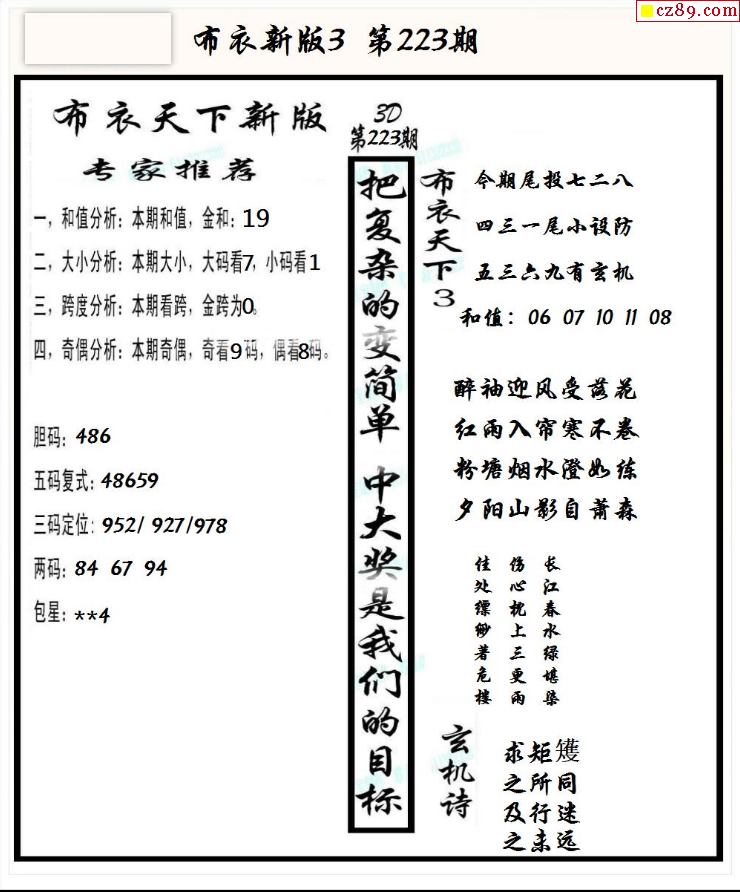 cz89.com
布衣新版3 第223期
布衣天下新版
专家推荐
一，和值分析：本期和值，金和：19
二，大小分析：本期大小，大码看7，小码看1
三，跨度分析：本期看跨，金跨为0。
四，奇偶分析：本期奇偶，奇看9码，偶看8码。
胆码：486
五码复式：48659
三码定位：952/ 927/978
两码：84 67 94
包星：**4
3D
第223期
把复杂的变简单 中大奖是我们的目标
布衣天下3
今期尾投七二八
四三一尾小设防
五三六九有玄机
和值：06 07 10 11 08
醉袖迎风受落花
红雨入帘寒不卷
粉塘烟水澄如练
夕阳山影自萧森
长江春水绿堪染
伤心枕上三更雨
佳处缥缈著危楼
玄机诗
求矩矱
之所同
及行迷
之未远